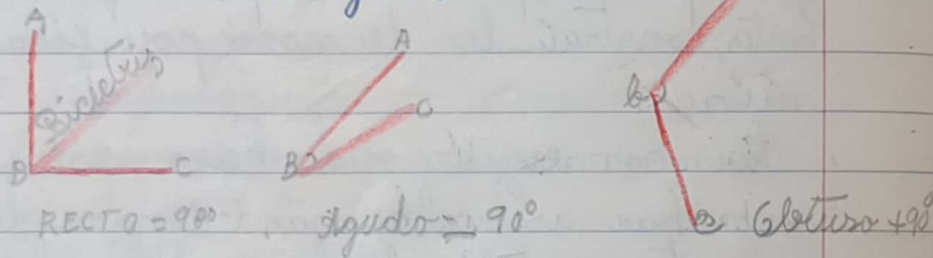 A
Bicietris
B C
RECTO = 90°
A
C
B
Agudo = - 90°
b
Obtuso + 90°